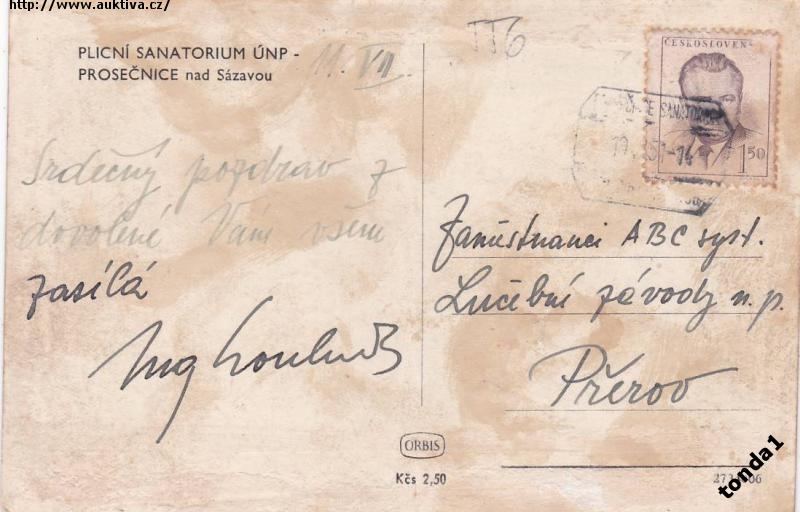 http://www.auktiva.cz/
PLICNÍ SANATORIUM ÚNP -
PROSEČNICE nad Sázavou
11. VII.
TT6
ČESKOSLOVEN
1 50
SANATORIUM
51-14
Srdečný pozdrav z
dovolené Vám všem
zasílá
Ing
Zaměstnanci ABC syst.
Lučební závody n.p.
Přerov
ORBIS
Kčs 2,50
tonda1